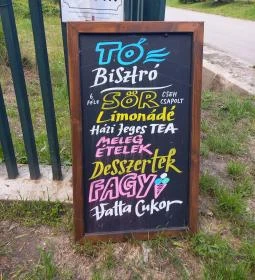 TÓ
BISZTRÓ
6 FÉLE SÖR CSEH CSAPOLT
LIMONÁDÉ
HÁZI JEGES TEA
MELEG
ÉTELEK
DESSZERTEK
FAGYI
VATTA CUKOR